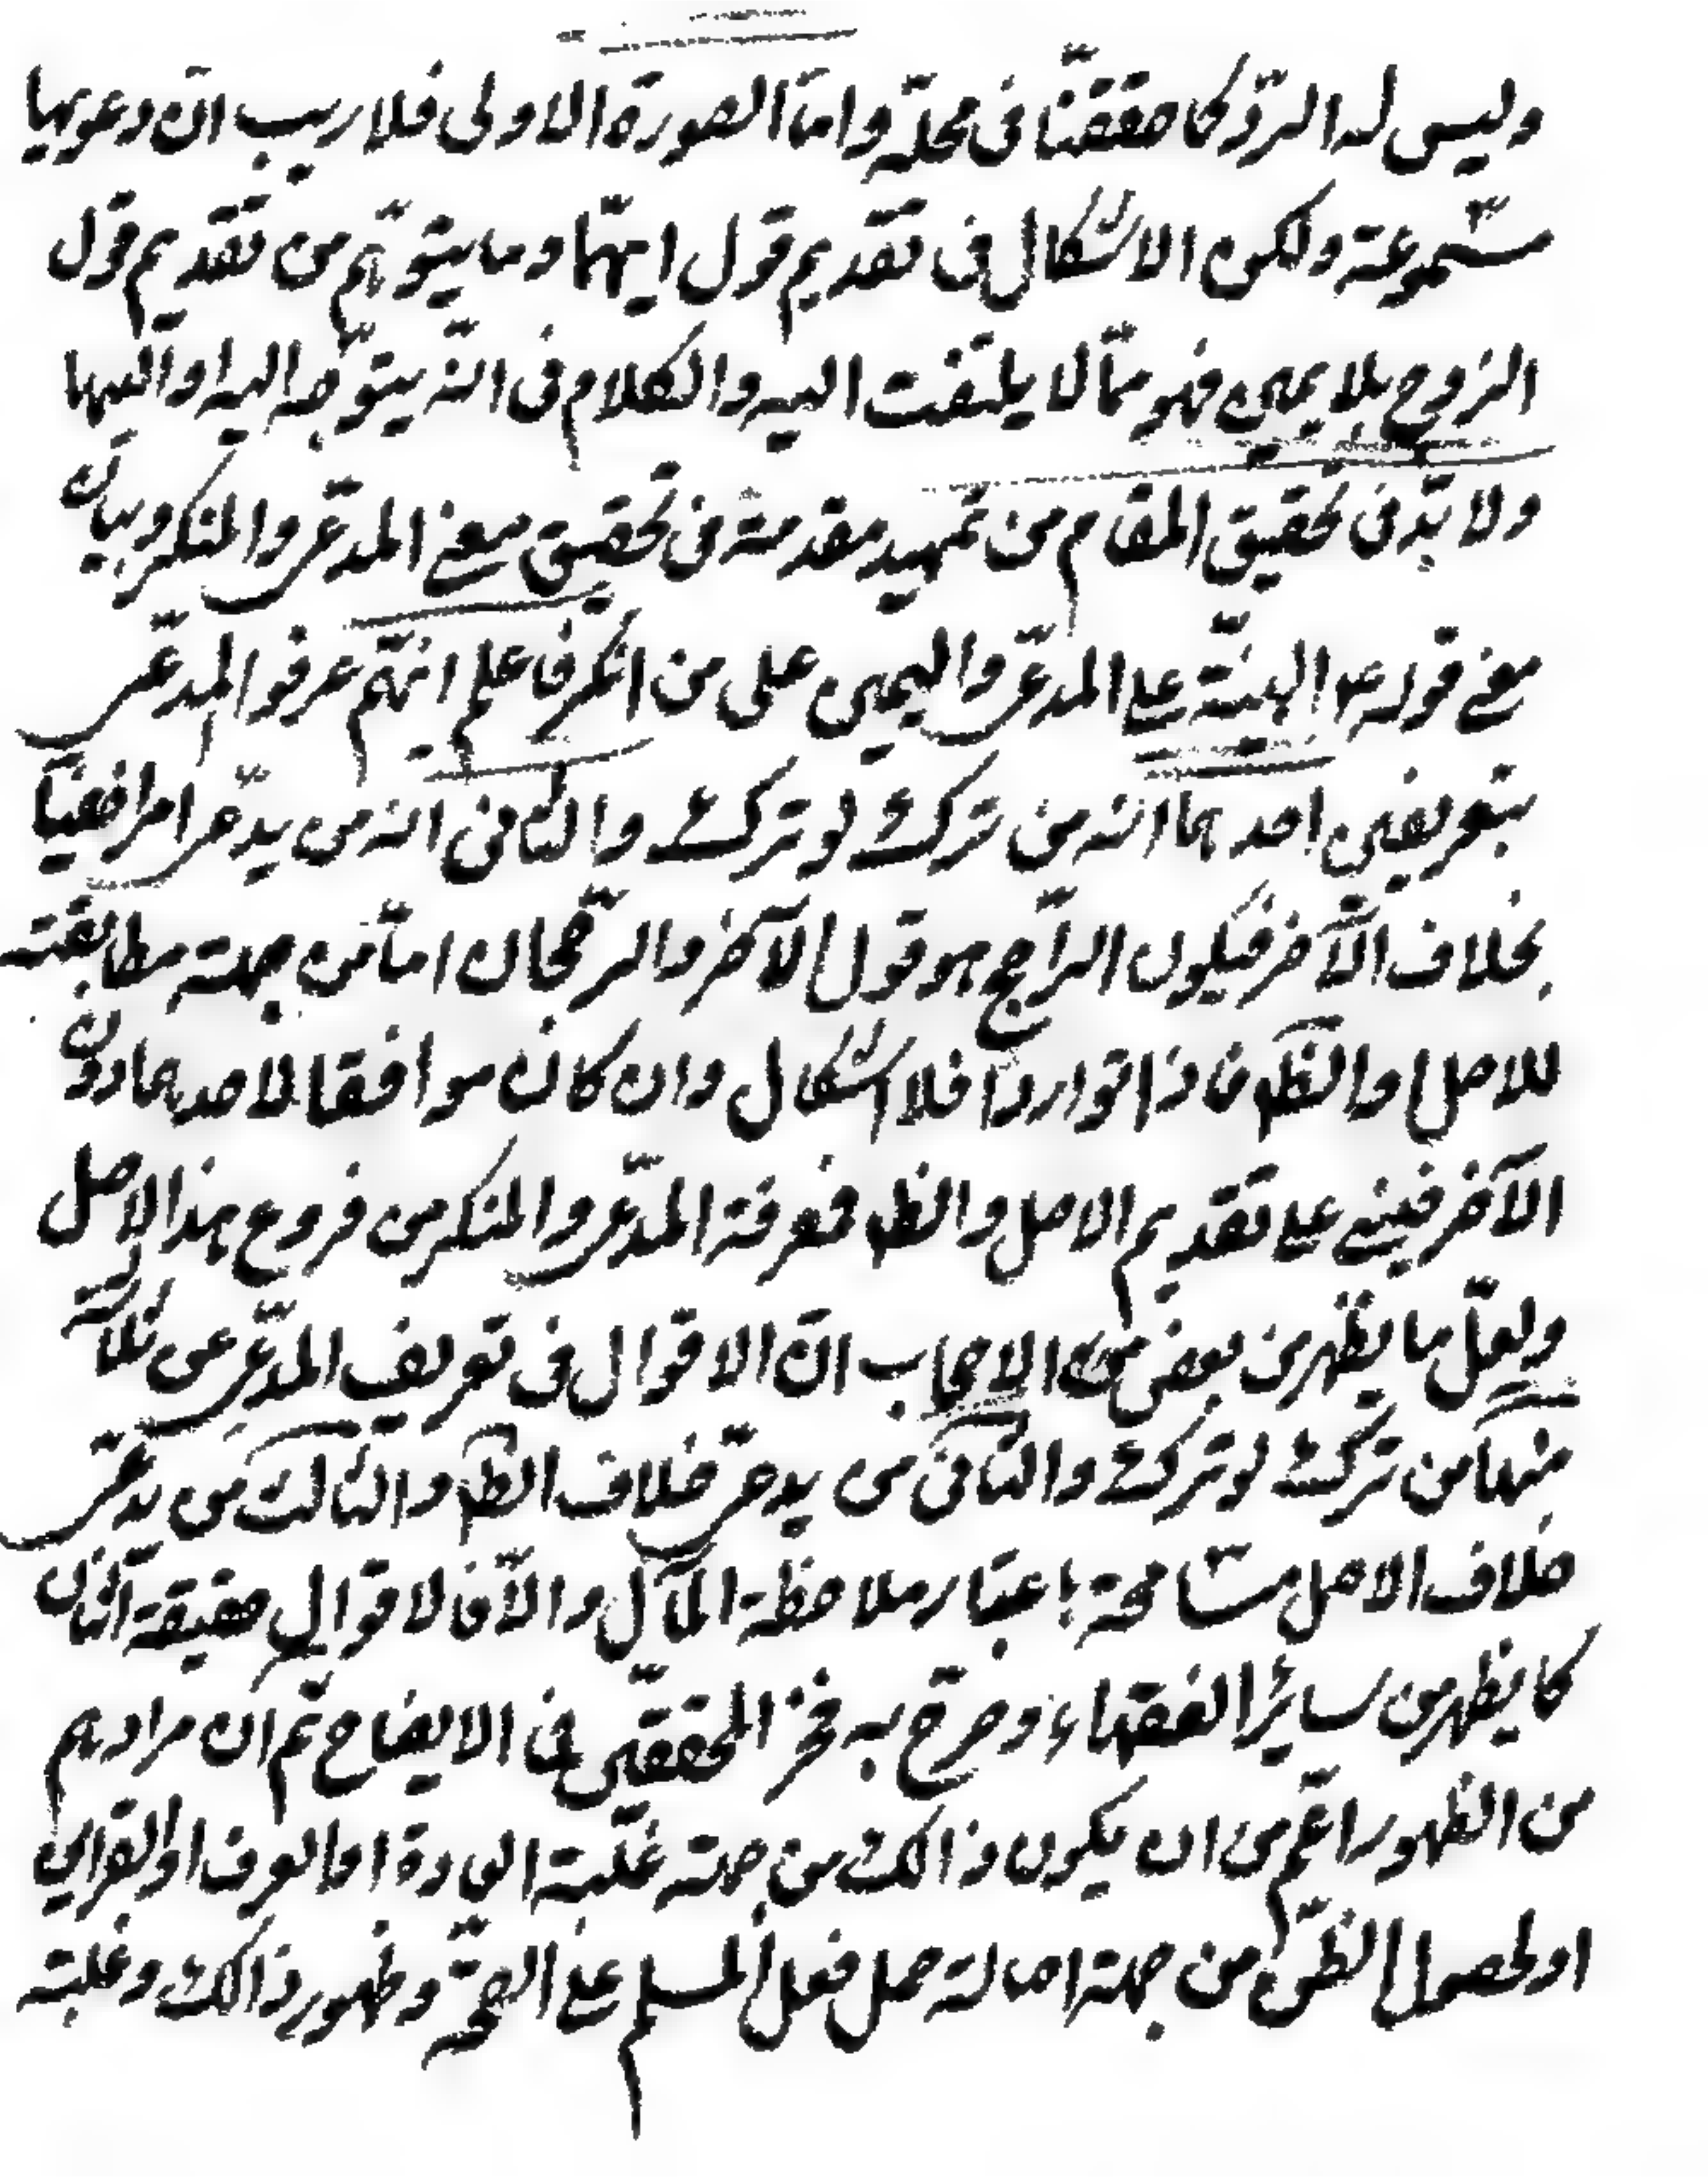 وليس له الردّ كما حققنا فى محلّه وامّا الصورة الاولى فلا ريب انّ دعويهما
مسموعة ولكن الاشكال فى تقديم قول ايّهما وما يتوهّم من تقديم قول
الزوج بلا يمين فهو ممّا لا يلتفت اليه والكلام فى انّه يتوجّه اليه او اليها
ولا بدّ فى تحقيق المقام من تمهيد مقدمة فى تحقيق معنى المدعى والمنكر وبيان
معنى قوله ع البيّنة على المدّعى واليمين على من انكر فاعلم انهّم عرفوا المدعّى
بتعريفين احدهما انّه من ترك لو ترك والثانى انه من يدّعى امرا خفيّا
بخلاف الآخر فيكون الرّاجح هو قول الآخر والرجّحان امّا من جهته مطابقته
للاصل او الظ فاذا تواردا فلا اشكال وان كان موافقا لاحدهما دون
الآخر فيبنى على تقديم الاصل والظ فمعرفة المدّعى والمنكر من فروع هذا الاصل
ولعلّ ما يظهر من بعض الاصحاب انّ الاقوال فى تعريف المدّعى ثلاثة
منها من ترك لو ترك والثانى من يدعى خلاف الظ والثالث من يدعّى
خلاف الاصل مسامحة باعتبار ملاحظة المآل والّا فالاقوال حقيقة اثنان
كما يظهر من سائر الفقهاء وصرّح به فخر المحققّين فى الايضاح ثم ان مرادهم
من الظهور اعمّ من ان يكون ذالك من جهته غلبة العادة او العرف او القراين
او لحصول الظنّ من جهة اصالة حمل فعل المسلم على الصحّة وظهور ذالك وغلبته